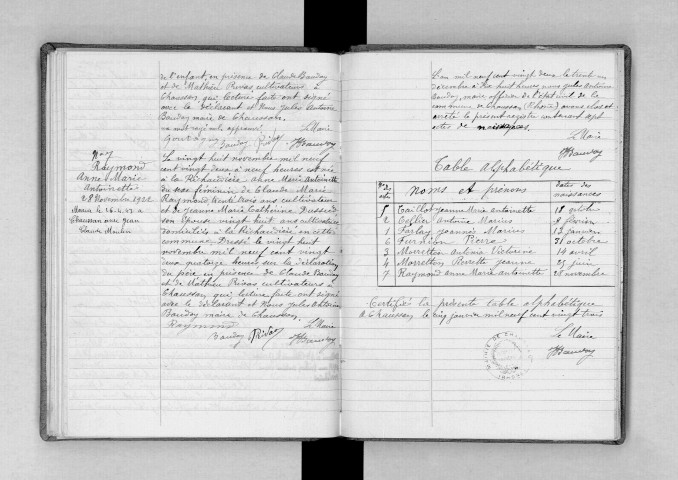 de l'enfant, en présence de Claude Bauday
et de Mathieu Rivas cultivateurs à
Chaussan, qui lecture faite ont signé
avec le déclarant et Nous Jules Antoine
Bauday maire de Chaussan.
un mot rayé nul, approuvé. Le Maire
Bauday Rivas JBauday
N° 7
Raymond
Anne Marie
Antoinette
28 Novembre 1922
Mariée le
Chaussan avec Jean
Claude
Le vingt huit novembre mil neuf
cent vingt deux à neuf heures est née
à la Richaudière Anne Marie Antoinette
du sexe féminin de Claude Marie
Raymond, trente trois ans cultivateur
et de Jeanne Marie Catherine
son épouse vingt huit ans cultivatrice
domiciliés à la Richaudière en cette
commune. Dressé le vingt huit
novembre mil neuf cent vingt
deux heures sur la déclaration
du père en présence de Claude Bauday
et de Mathieu Rivas cultivateurs à
Chaussan, qui lecture faite ont signé
avec le déclarant et Nous Jules Antoine
Bauday maire de Chaussan.
Raymond Le Maire
Bauday Rivas JBauday
L'an mil neuf cent vingt deux le trente un
décembre à dix huit heures nous Jules Antoine
Bauday, maire officier de l'état civil de la
commune de Chaussan (Rhône) avons clos et
arrêté le présent registre contenant sept
actes de naissances.
Le Maire
JBauday
Table alphabétique
Nos des actes Noms et prénoms dates des naissances
5 Caillot Jeanne Marie Antoinette 18 octobre
2 Collier Antoine Marius 8 février
1 Farlay Joannès Marius 13 janvier
6 Furnion Pierre 31 octobre
3 Morretton Antonia Victorine 14 avril
4 Morretton Pierrette Jeanne 25 juin
7 Raymond Anne Marie Antoinette 28 novembre
Certifiée la présente table alphabétique
à Chaussan, le cinq janvier mil neuf cent vingt trois
Le Maire
JBauday